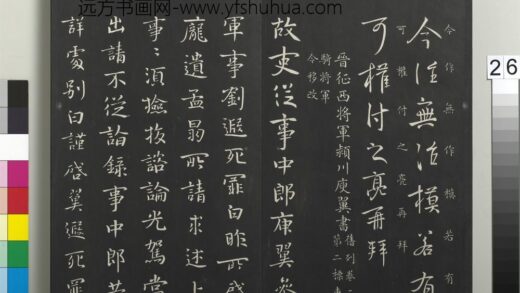 远方书画网-www.yfshuhua.com
今作無作模若有
今往無治模若有
可權付之亮再拜
可權付之亮再拜
晉征西將軍潁川庾翼書
舊列卷
第二標
騎將軍
今移改
故吏從事中郎庾翼
軍事劉遐死罪白昨所
龐遺孟昺所請求述上
事事須撿校諮論光駕當
出請不從諮録事中郎
詳處別白謹啓翼遐死罪
26